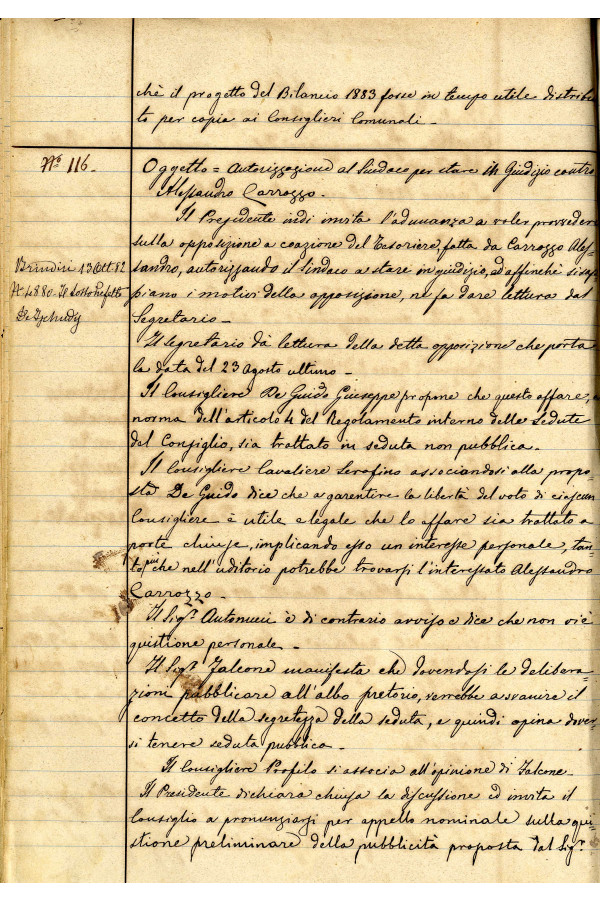 chè il progetto del Bilancio 1883 fosse in tempo utile distribui
to per copia ai Consiglieri Comunali_
Nº 116_
Oggetto = Autorizzazione al Sindaco per stare in Giudizio contro
Alessandro Carrozzo_
Il Presidente indi invita l'adunanza a voler provvedere
sulla opposizione a coazione del Tesoriere, fatta da Carrozzo Ales
sandro, autorizzando il Sindaco a stare in giudizio, ad affinchè si sap
piano i motivi della opposizione, ne fa dare lettura dal
Segretario_
Brindisi 13 Ott 82
Nº 4880. Il Sottoprefetto
De Tschudy
Il Segretario dà lettura della detta opposizione che porta
la data del 23 Agosto ultimo_
Il Consigliere De Guido Giuseppe propone che questo affare, a
norma dell'articolo 4 del Regolamento interno delle Sedute
del Consiglio, sia trattato in seduta non pubblica_
Il Consigliere Cavaliere Serafino associandosi alla propo-
sta De Guido dice che a garentire la libertà del voto di ciascun
Consigliere è utile e legale che lo affare sia trattato a
porte chiuse, implicando esso un interesse personale, tan
to più che nell'uditorio potrebbe trovarsi l'interessato Alessandro
Carrozzo_
Il Sigr. Antonucci è di contrario avviso e dice che non vi è
quistione personale_
Il Sigr. Falcone manifesta che dovendosi le delibera-
zioni pubblicare all'albo pretorio, verrebbe a svanire il
concetto della segretezza della seduta, e quindi opina dover
si tenere seduta pubblica_
Il Consigliere Profilo si associa all'opinione di Falcone_
Il Presidente dichiara chiusa la discussione ed invita il
Consiglio a pronunziarsi per appello nominale sulla qui
stione preliminare della pubblicità proposta dal Sigr.